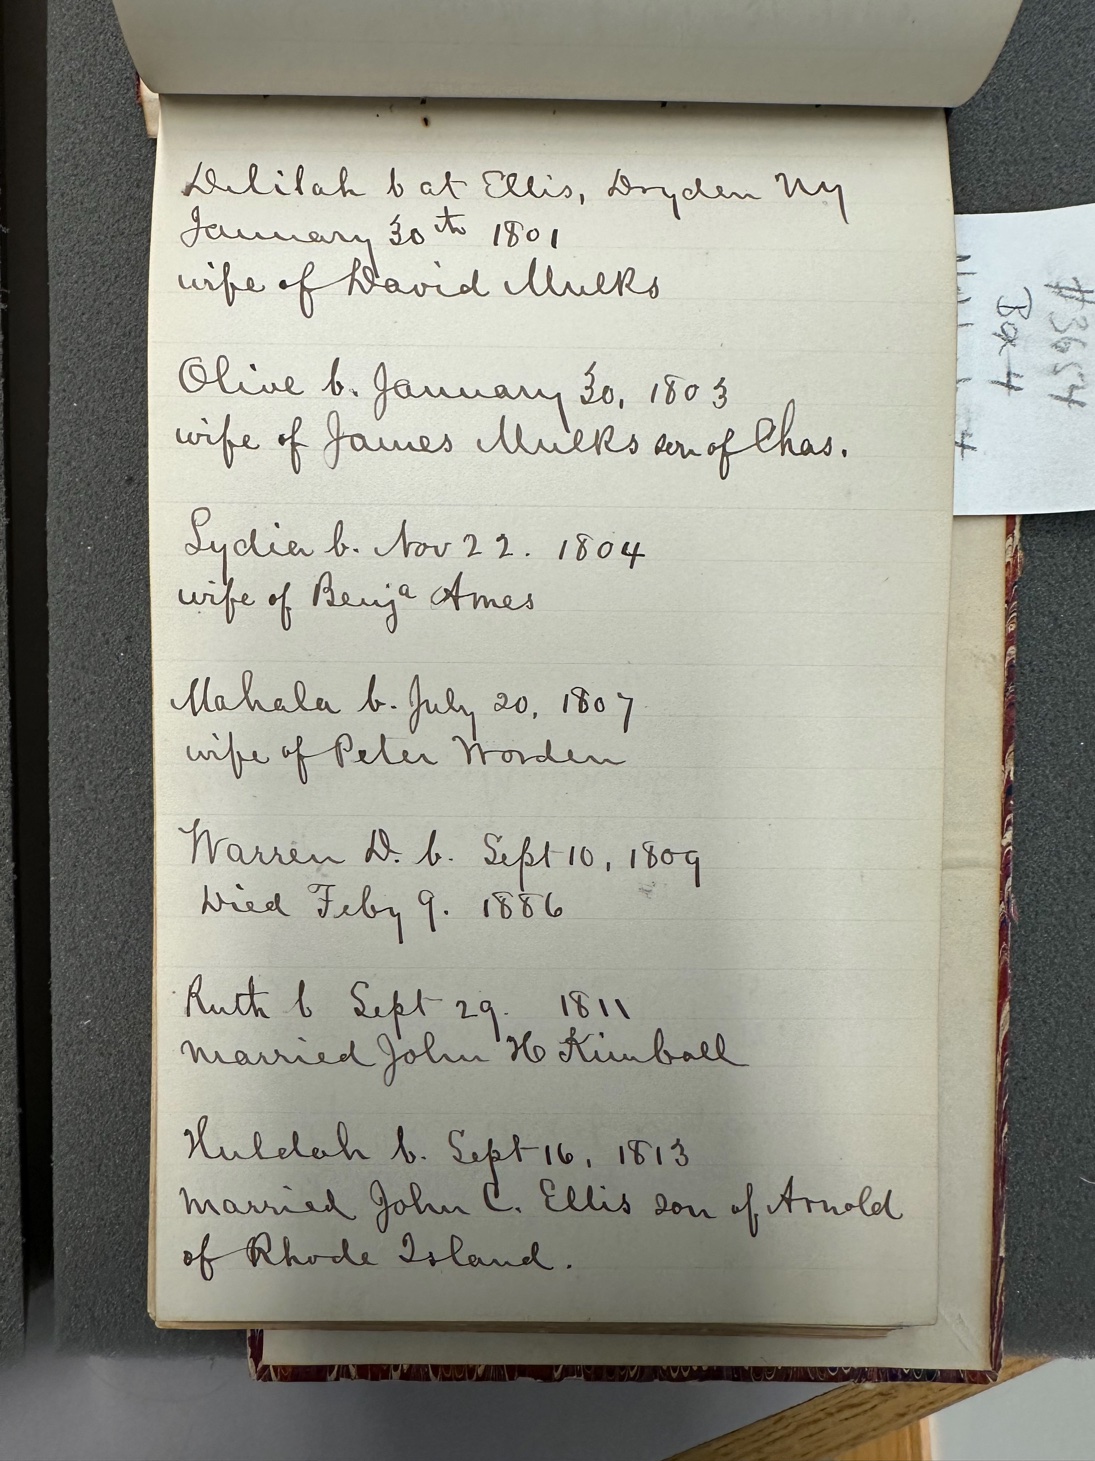 Delilah b at Ellis, Dryden NY
January 30th 1801
wife of David Mulks
Olive b. January 30, 1803
wife of James Mulks son of Chas.
Lydia b. Nov 22. 1804
wife of Benja Ames
Mahala b. July 20, 1807
wife of Peter Worden
Warren D. b. Sept 10, 1809
Died Feby 9. 1886
Ruth b Sept 29. 1811
married John H Kimball
Huldah b. Sept 16, 1813
married John C. Ellis son of Arnold
of Rhode Island.
#3654
Box 4